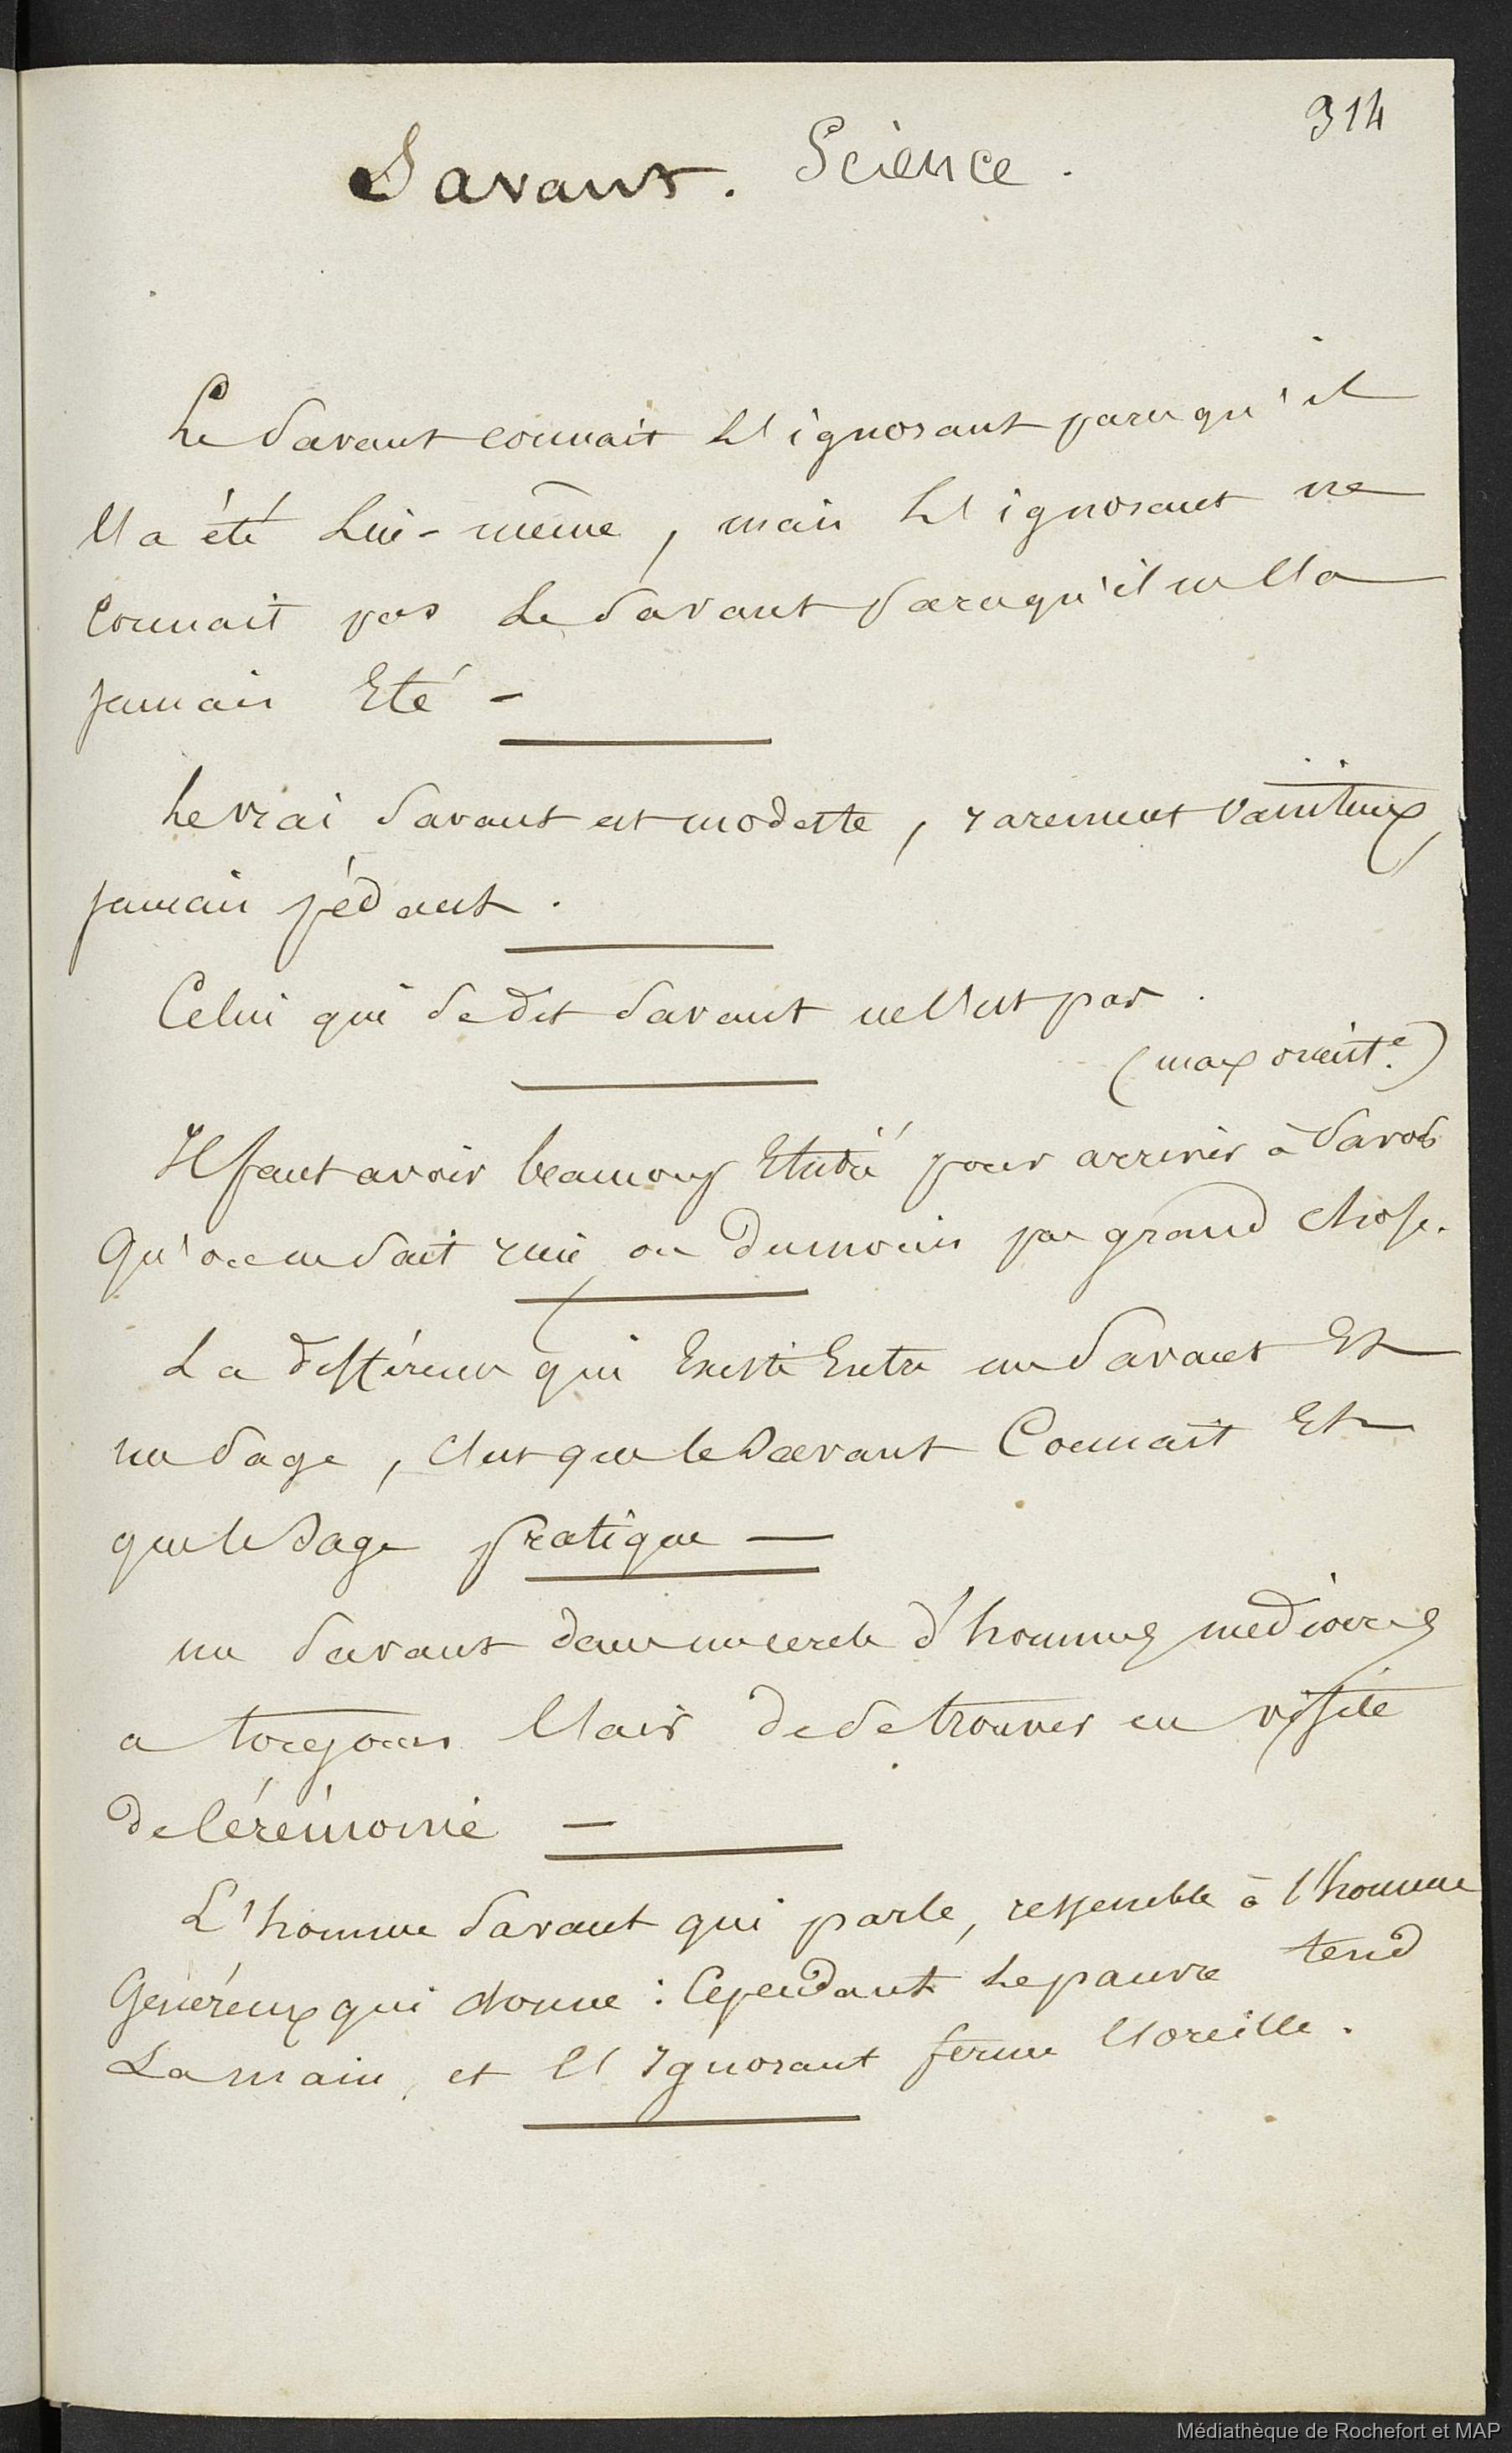 314
Savant. Science.
Le Savant connait L'ignorant parcequ'il
l'a été Lui-même, mais L'ignorant ne
Connait pas Le Savant parcequ'il ne l'a
jamais Eté -
Le vrai Savant est modeste, rarement Vaniteux,
jamais pédant.
Celui qui Se dit Savant ne l'est pas.
(max orient.e)
Il faut avoir beaucoup Etudié pour arriver à Savoir
Qu'on ne Sait rien, ou Dumoins pas grand Chose.
La différence qui Existe Entre un Savant Et
un Sage, C'est que le Savant Connait Et
que le Sage pratique —
un Savant dans un cercle d'hommes mediocres
a toujours l'air De Se trouver en visite
De Cérémonie —
L'homme Savant qui parle, ressemble à l'homme
Généreux qui donne : Cependant Le pauvre tend
La main, et l'Ignorant ferme l'oreille.
Médiathèque de Rochefort et MAP